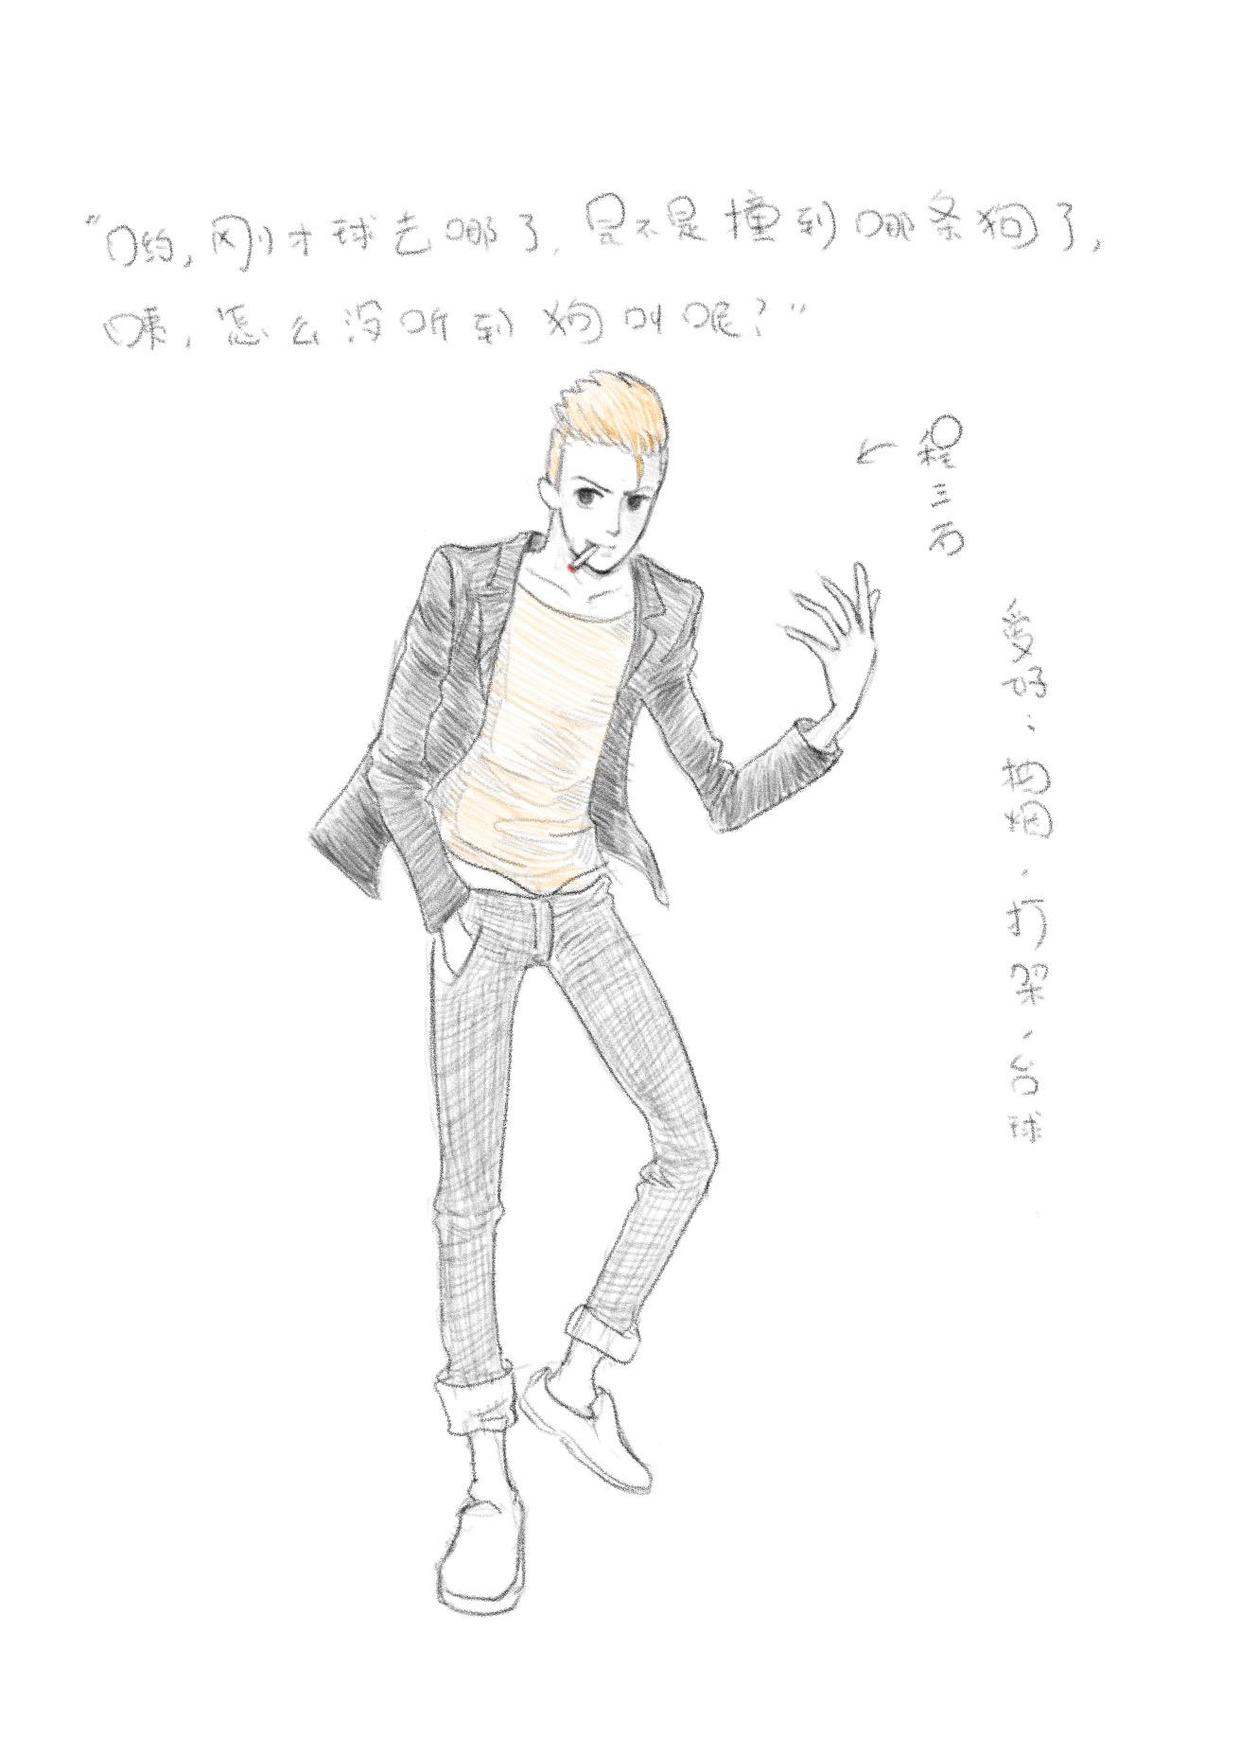 “哟，刚才球去哪了，是不是撞到哪条狗了，
咦，怎么没听到狗叫呢？”
← 程三石
爱好：抽烟、打架、台球